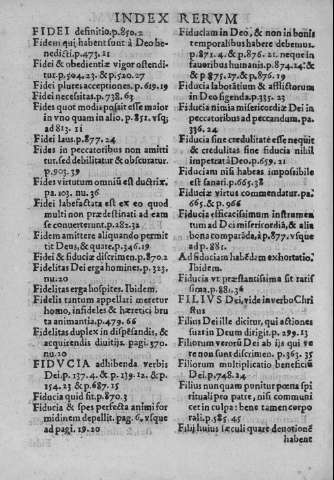 INDEX RERVM
FIDEI definitio.p.850.2
Fidem qui habent sunt à Deo be-
nedicti.p.473.21
Fidei & obedientiæ vigor ostendi-
tur.p.504.23. & p.520.27
Fidei plures acceptiones.p.619.19
Fidei necessitas.p.738.63
Fides quot modis possit esse maior
in vno quam in alio.p.851. vsq;
ad 813. 11
Fidei laus.p.877. 24
Fides in peccatoribus non amitti
tur. sed debilitatur & obscuratur.
p.903.39
Fides virtutum omniũ est ductrix.
pa. 103. nu. 36
Fidei labefactata est ex eo quod
multi non prædestinati ad eam
se conuerterunt.p.281.32
Fidem amittere aliquando permit
tit Deus, & quare.p.346.19
Fidei & fiduciæ discrimen.p.870.2
Fidelitas Dei erga homines.p. 323.
nu. 20
Fidelitas erga hospites. Ibidem.
Fidelis tantum appellari meretur
homo, infideles & hæretici bru
ta animantia.p.479. 66
Fidelitas duplex in dispẽsandis, &
acquirendis diuitijs. pagi. 370.
nu. 20
FIDVCIA adhibenda verbis
Dei.p. 137. 4. & p. 139. 12. & p.
154. 23 & p.687. 15
Fiducia quid sit.p.870.3
Fiducia & spes perfecta animi for
midinem depellit. pag. 6. vsque
ad pagi. 19. 20
Fiduciam in Deo, & non in bonis
temporalibus habere debemus.
p.871. 4. & p.876. 21. neque in
fauoribus humanis.p.874.24. &
& p 875. 17. & p.876. 19
Fiducia laborãtium & afflictorum
in Deo figenda.p.335. 23
Fiducia nimia misericordiæ Dei in
peccatoribus ad peccandum. pa.
336. 24
Fiducia sine credulitate esse nequit
& credulitas sine fiducia nihil
impetrat à Deo.p.659. 21
Fiduciam nisi habeas impossibile
est sanari.p.665.38
Fiduciæ virtus commendatur. pa.
665. & p.966
Fiducia efficacissimum instrumen
tum ad Dei misericordiã, & alia
bona comparãda, à p.877. vsque
ad p. 881.
Ad fiduciam habẽdam exhortatio.
Ibidem.
Fiducia vt præstantissima sit ratis
sima. p.881. 36
FILIVS Dei, vide in verbo Chri
stus
Filius Dei ille dicitur, qui actiones
suas in Deum dirigit. p. 299. 13
Filiorum verorũ Dei ab ijs qui ve
re non sunt discrimen. p.363. 35
Filiorum multiplicatio beneficiũ
Dei.p.748.24
Filius nunquam punitur pœna spi
rituali pro patre, nisi communi
cet in culpa: bene tamen corpo
rali.p.585. 45
Filij huius sæculi quare denotionẽ
habent